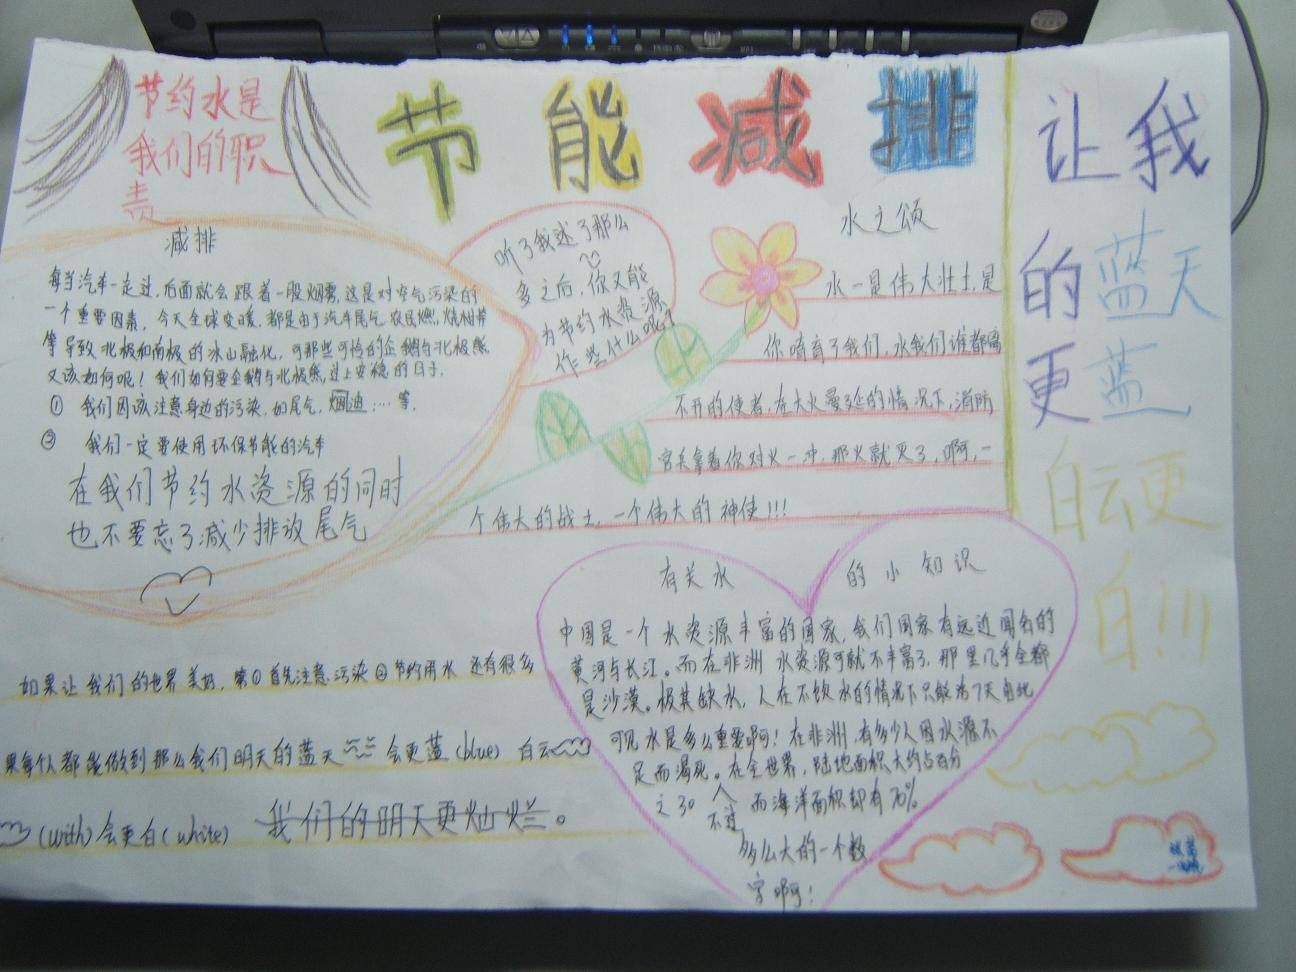 节约水是
我们的职
责
节能减排
让我
的蓝天
更蓝
白云更
白!!!
减排
每当汽车一走过,后面就会跟着一股烟雾,这是对空气污染的
一个重要因素,今天全球变暖,都是由于汽车尾气,农民燃,烧树草
等导致北极和南极的冰山融化,可那些可怜的企鹅与北极熊
又该如何呢!我们如何要企鹅与北极熊过上安稳的日子.
① 我们因该注意身边的污染.如尾气,烟油....等.
② 我们一定要使用环保节能的汽车
在我们节约水资源的同时
也不要忘了减少排放尾气
听了我述了那么
多之后,你又能
为节约水资源
作些什么呢?
水之颂
水一是伟大壮士,是
你哺育了我们,水我们谁都离
不开的使者,在大火蔓延的情况下,消防
官兵拿着你对火一冲,那火就灭了,啊,一
个伟大的战士,一个伟大的神使!!!
有关水的小知识
中国是一个水资源丰富的国家,我们国家有远近闻名的
黄河与长江。而在非洲水资源可就不丰富了,那里几乎全都
是沙漠。极其缺水,人在不饮水的情况下只能活7天由此
可见水是多么重要啊!在非洲,有多少人因水源不
足而渴死。在全世界,陆地面积大约占百分
之30不过而海洋面积却有70%
多么大的一个数
字啊!
如果让我们的世界美好,第①首先注意污染②节约用水 还有很多
果每个人都能做到那么我们明天的蓝天会更蓝(blue) 白云
(with)会更白(white) 我们的明天更灿烂。